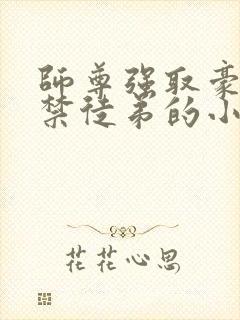 師尊强取豪
禁徒弟的小
花花心思